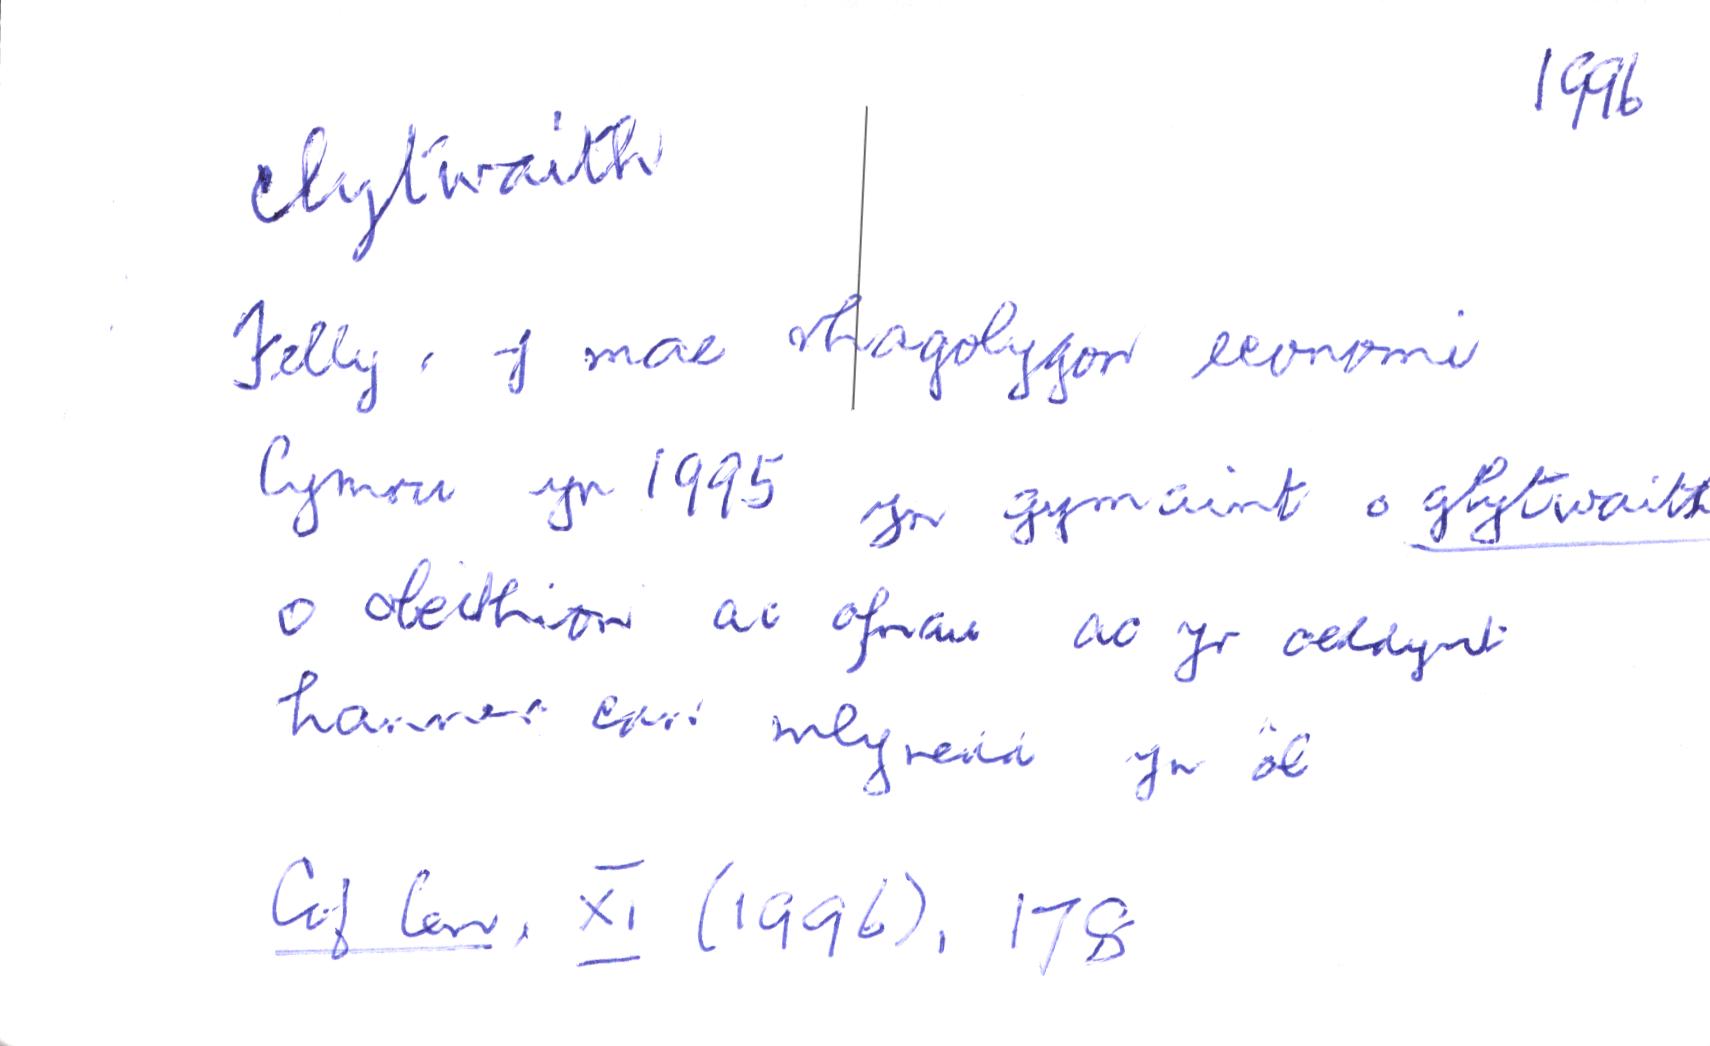 1996
clytwaith
Felly, y mae rhagolygon economi
Cymru yn 1995 yn gymaint o glytwaith
o obeithion ac ofnau ac yr oeddynt
hanner can mlynedd yn ôl
Cof Cen, XI (1996), 178